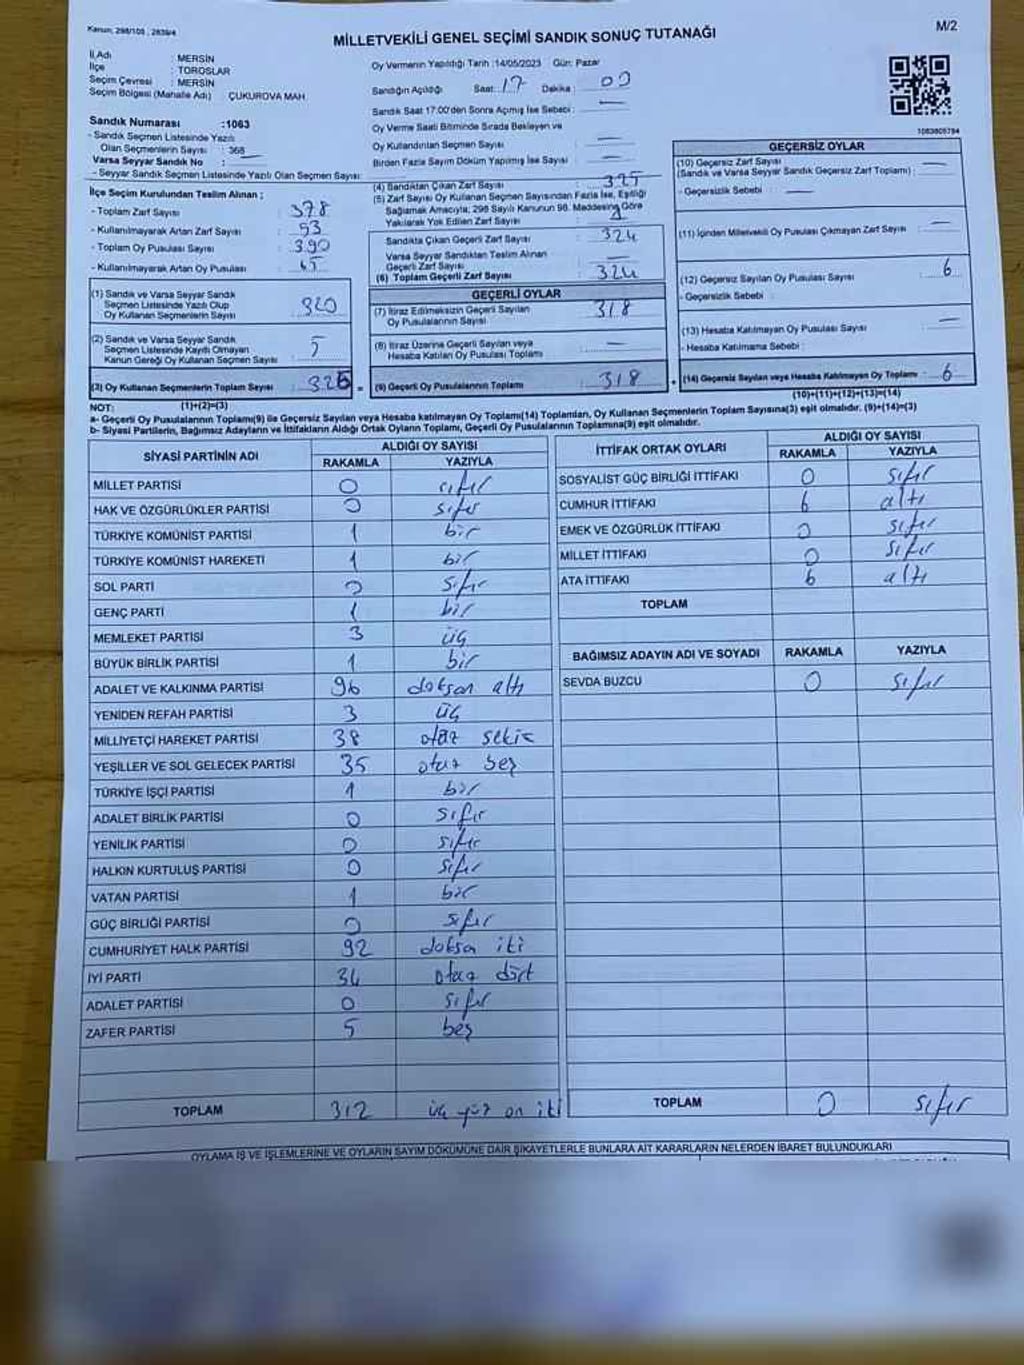 Kanun, 298/105 , 2839/4
M/2
MİLLETVEKİLİ GENEL SEÇİMİ SANDIK SONUÇ TUTANAĞI
İl Adı : MERSİN
İlçe : TOROSLAR
Seçim Çevresi : MERSİN
Seçim Bölgesi (Mahalle Adı) ÇUKUROVA MAH.
Sandık Numarası :1063
- Sandık Seçmen Listesinde Yazılı
Olan Seçmenlerin Sayısı : 368
Varsa Seyyar Sandık No : —
- Seyyar Sandık Seçmen Listesinde Yazılı Olan Seçmen Sayısı:
İlçe Seçim Kurulundan Teslim Alınan ;
- Toplam Zarf Sayısı : 378
- Kullanılmayarak Artan Zarf Sayısı : 53
- Toplam Oy Pusulası Sayısı : 390
- Kullanılmayarak Artan Oy Pusulası : 65
(1) Sandık ve Varsa Seyyar Sandık
Seçmen Listesinde Yazılı Olup
Oy Kullanan Seçmenlerin Sayısı : 320
(2) Sandık ve Varsa Seyyar Sandık
Seçmen Listesinde Kayıtlı Olmayan
Kanun Gereği Oy Kullanan Seçmen Sayısı : 5
(3) Oy Kullanan Seçmenlerin Toplam Sayısı :
(1)+(2)=(3)
Oy Vermenin Yapıldığı Tarih :14/05/2023 Gün: Pazar
Sandığın Açıldığı Saat: 17 Dakika : 00
Sandık Saat 17:00'den Sonra Açılmış İse Sebebi : —
Oy Verme Saati Bitiminde Sırada Bekleyen ve
Oy Kullandırılan Seçmen Sayısı : —
Birden Fazla Sayım Döküm Yapılmış İse Sayısı : —
(4) Sandıktan Çıkan Zarf Sayısı : 325
(5) Zarf Sayısı Oy Kullanan Seçmen Sayısından Fazla İse, Eşitliği
Sağlamak Amacıyla, 298 Sayılı Kanunun 98. Maddesine Göre
Yakılarak Yok Edilen Zarf Sayısı : 1
Sandıkta Çıkan Geçerli Zarf Sayısı : 324
Varsa Seyyar Sandıktan Teslim Alınan
Geçerli Zarf Sayısı
(6) Toplam Geçerli Zarf Sayısı : 324
GEÇERLİ OYLAR
(7) İtiraz Edilmeksizin Geçerli Sayılan
Oy Pusulalarının Sayısı : 318
(8) İtiraz Üzerine Geçerli Sayılan veya
Hesaba Katılan Oy Pusulası Toplamı : —
(9) Geçerli Oy Pusulalarının Toplamı : 318
1063805784
GEÇERSİZ OYLAR
(10) Geçersiz Zarf Sayısı
(Sandık ve Varsa Seyyar Sandık Geçersiz Zarf Toplamı) : —
- Geçersizlik Sebebi : —
(11) İçinden Milletvekili Oy Pusulası Çıkmayan Zarf Sayısı : —
(12) Geçersiz Sayılan Oy Pusulası Sayısı : 6
- Geçersizlik Sebebi :
(13) Hesaba Katılmayan Oy Pusulası Sayısı : —
- Hesaba Katılmama Sebebi :
(14) Geçersiz Sayılan veya Hesaba Katılmayan Oy Toplamı : 6
(10)+(11)+(12)+(13)=(14)
NOT:
a- Geçerli Oy Pusulaları Toplamı(9) ile Geçersiz Sayılan veya Hesaba katılmayan Oy Toplamı(14) Toplamları, Oy Kullanan Seçmenlerin Toplam Sayısına(3) eşit olmalıdır. (9)+(14)=(3)
b- Siyasi Partilerin, Bağımsız Adayların ve İttifakların Aldığı Ortak Oyların Toplamı, Geçerli Oy Pusulalarının Toplamına(9) eşit olmalıdır.
SİYASİ PARTİNİN ADI ALDIĞI OY SAYISI
RAKAMLA YAZIYLA
MİLLET PARTİSİ 0 sıfır
HAK VE ÖZGÜRLÜKLER PARTİSİ 0 sıfır
TÜRKİYE KOMÜNİST PARTİSİ 1 bir
TÜRKİYE KOMÜNİST HAREKETİ 1 bir
SOL PARTİ 0 sıfır
GENÇ PARTİ 1 bir
MEMLEKET PARTİSİ 3 üç
BÜYÜK BİRLİK PARTİSİ 1 bir
ADALET VE KALKINMA PARTİSİ 96 doksan altı
YENİDEN REFAH PARTİSİ 3 üç
MİLLİYETÇİ HAREKET PARTİSİ 38 otuz sekiz
YEŞİLLER VE SOL GELECEK PARTİSİ 35 otuz beş
TÜRKİYE İŞÇİ PARTİSİ 1 bir
ADALET BİRLİK PARTİSİ 0 sıfır
YENİLİK PARTİSİ 0 sıfır
HALKIN KURTULUŞ PARTİSİ 0 sıfır
VATAN PARTİSİ 1 bir
GÜÇ BİRLİĞİ PARTİSİ 0 sıfır
CUMHURİYET HALK PARTİSİ 92 doksan iki
İYİ PARTİ 34 otuz dört
ADALET PARTİSİ 0 sıfır
ZAFER PARTİSİ 5 beş
TOPLAM 312 üç yüz on iki
İTTİFAK ORTAK OYLARI ALDIĞI OY SAYISI
RAKAMLA YAZIYLA
SOSYALİST GÜÇ BİRLİĞİ İTTİFAKI 0 sıfır
CUMHUR İTTİFAKI 6 altı
EMEK VE ÖZGÜRLÜK İTTİFAKI 0 sıfır
MİLLET İTTİFAKI 0 sıfır
ATA İTTİFAKI 6 altı
TOPLAM
BAĞIMSIZ ADAYIN ADI VE SOYADI RAKAMLA YAZIYLA
SEVDA BUZCU 0 sıfır
TOPLAM 0 sıfır
OYLAMA İŞ VE İŞLEMLERİNE VE OYLARIN SAYIM DÖKÜMÜNE DAİR ŞİKAYETLERLE BUNLARA AİT KARARLARIN NELERDEN İBARET BULUNDUKLARI